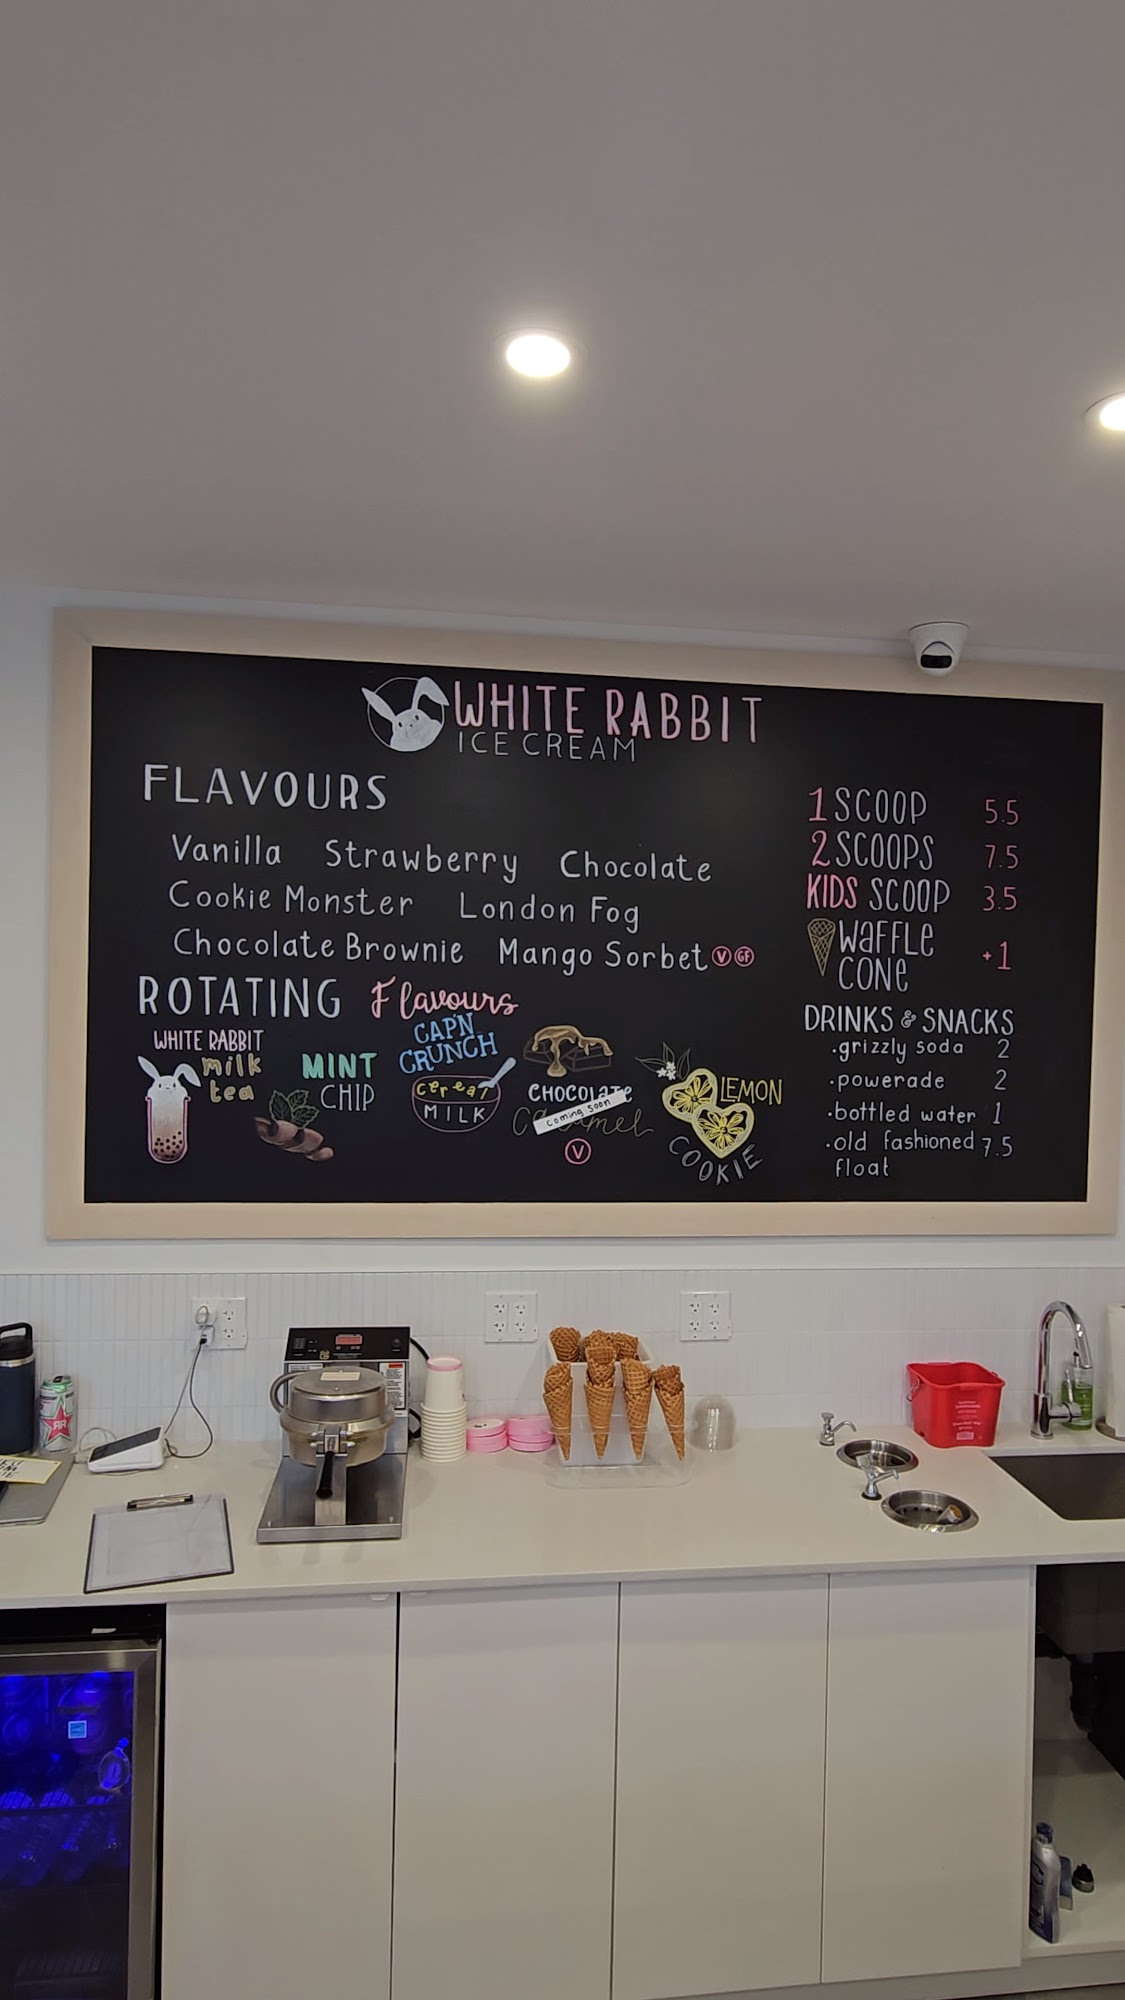 WHITE RABBIT
ICE CREAM
FLAVOURS
Vanilla Strawberry Chocolate
Cookie Monster London Fog
Chocolate Brownie Mango Sorbet V GF
ROTATING Flavours
WHITE RABBIT
milk
tea
MINT
CHIP
CAP'N
CRUNCH
cereal
MILK
CHOCOLATE
Caramel
coming soon
V
LEMON
COOKIE
1 SCOOP 5.5
2 SCOOPS 7.5
KIDS SCOOP 3.5
WAFFLE
CONE +1
DRINKS & SNACKS
·grizzly soda 2
·powerade 2
·bottled water 1
·old fashioned 7.5
float